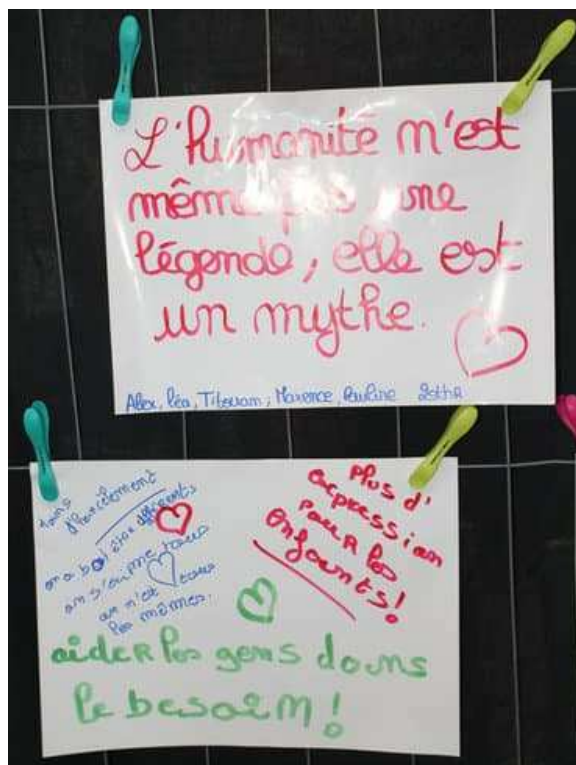 L'humanité n'est
même pas une
légende, elle est
un mythe.
Alex, Léa, Titouam, Maxence, Pauline
sans
harcèlement
on a bo être différents
on s'aime tous
on n'est tous
les mêmes.
Plus d'
expression
pour les
enfants!
aider les gens dans
le besoin!